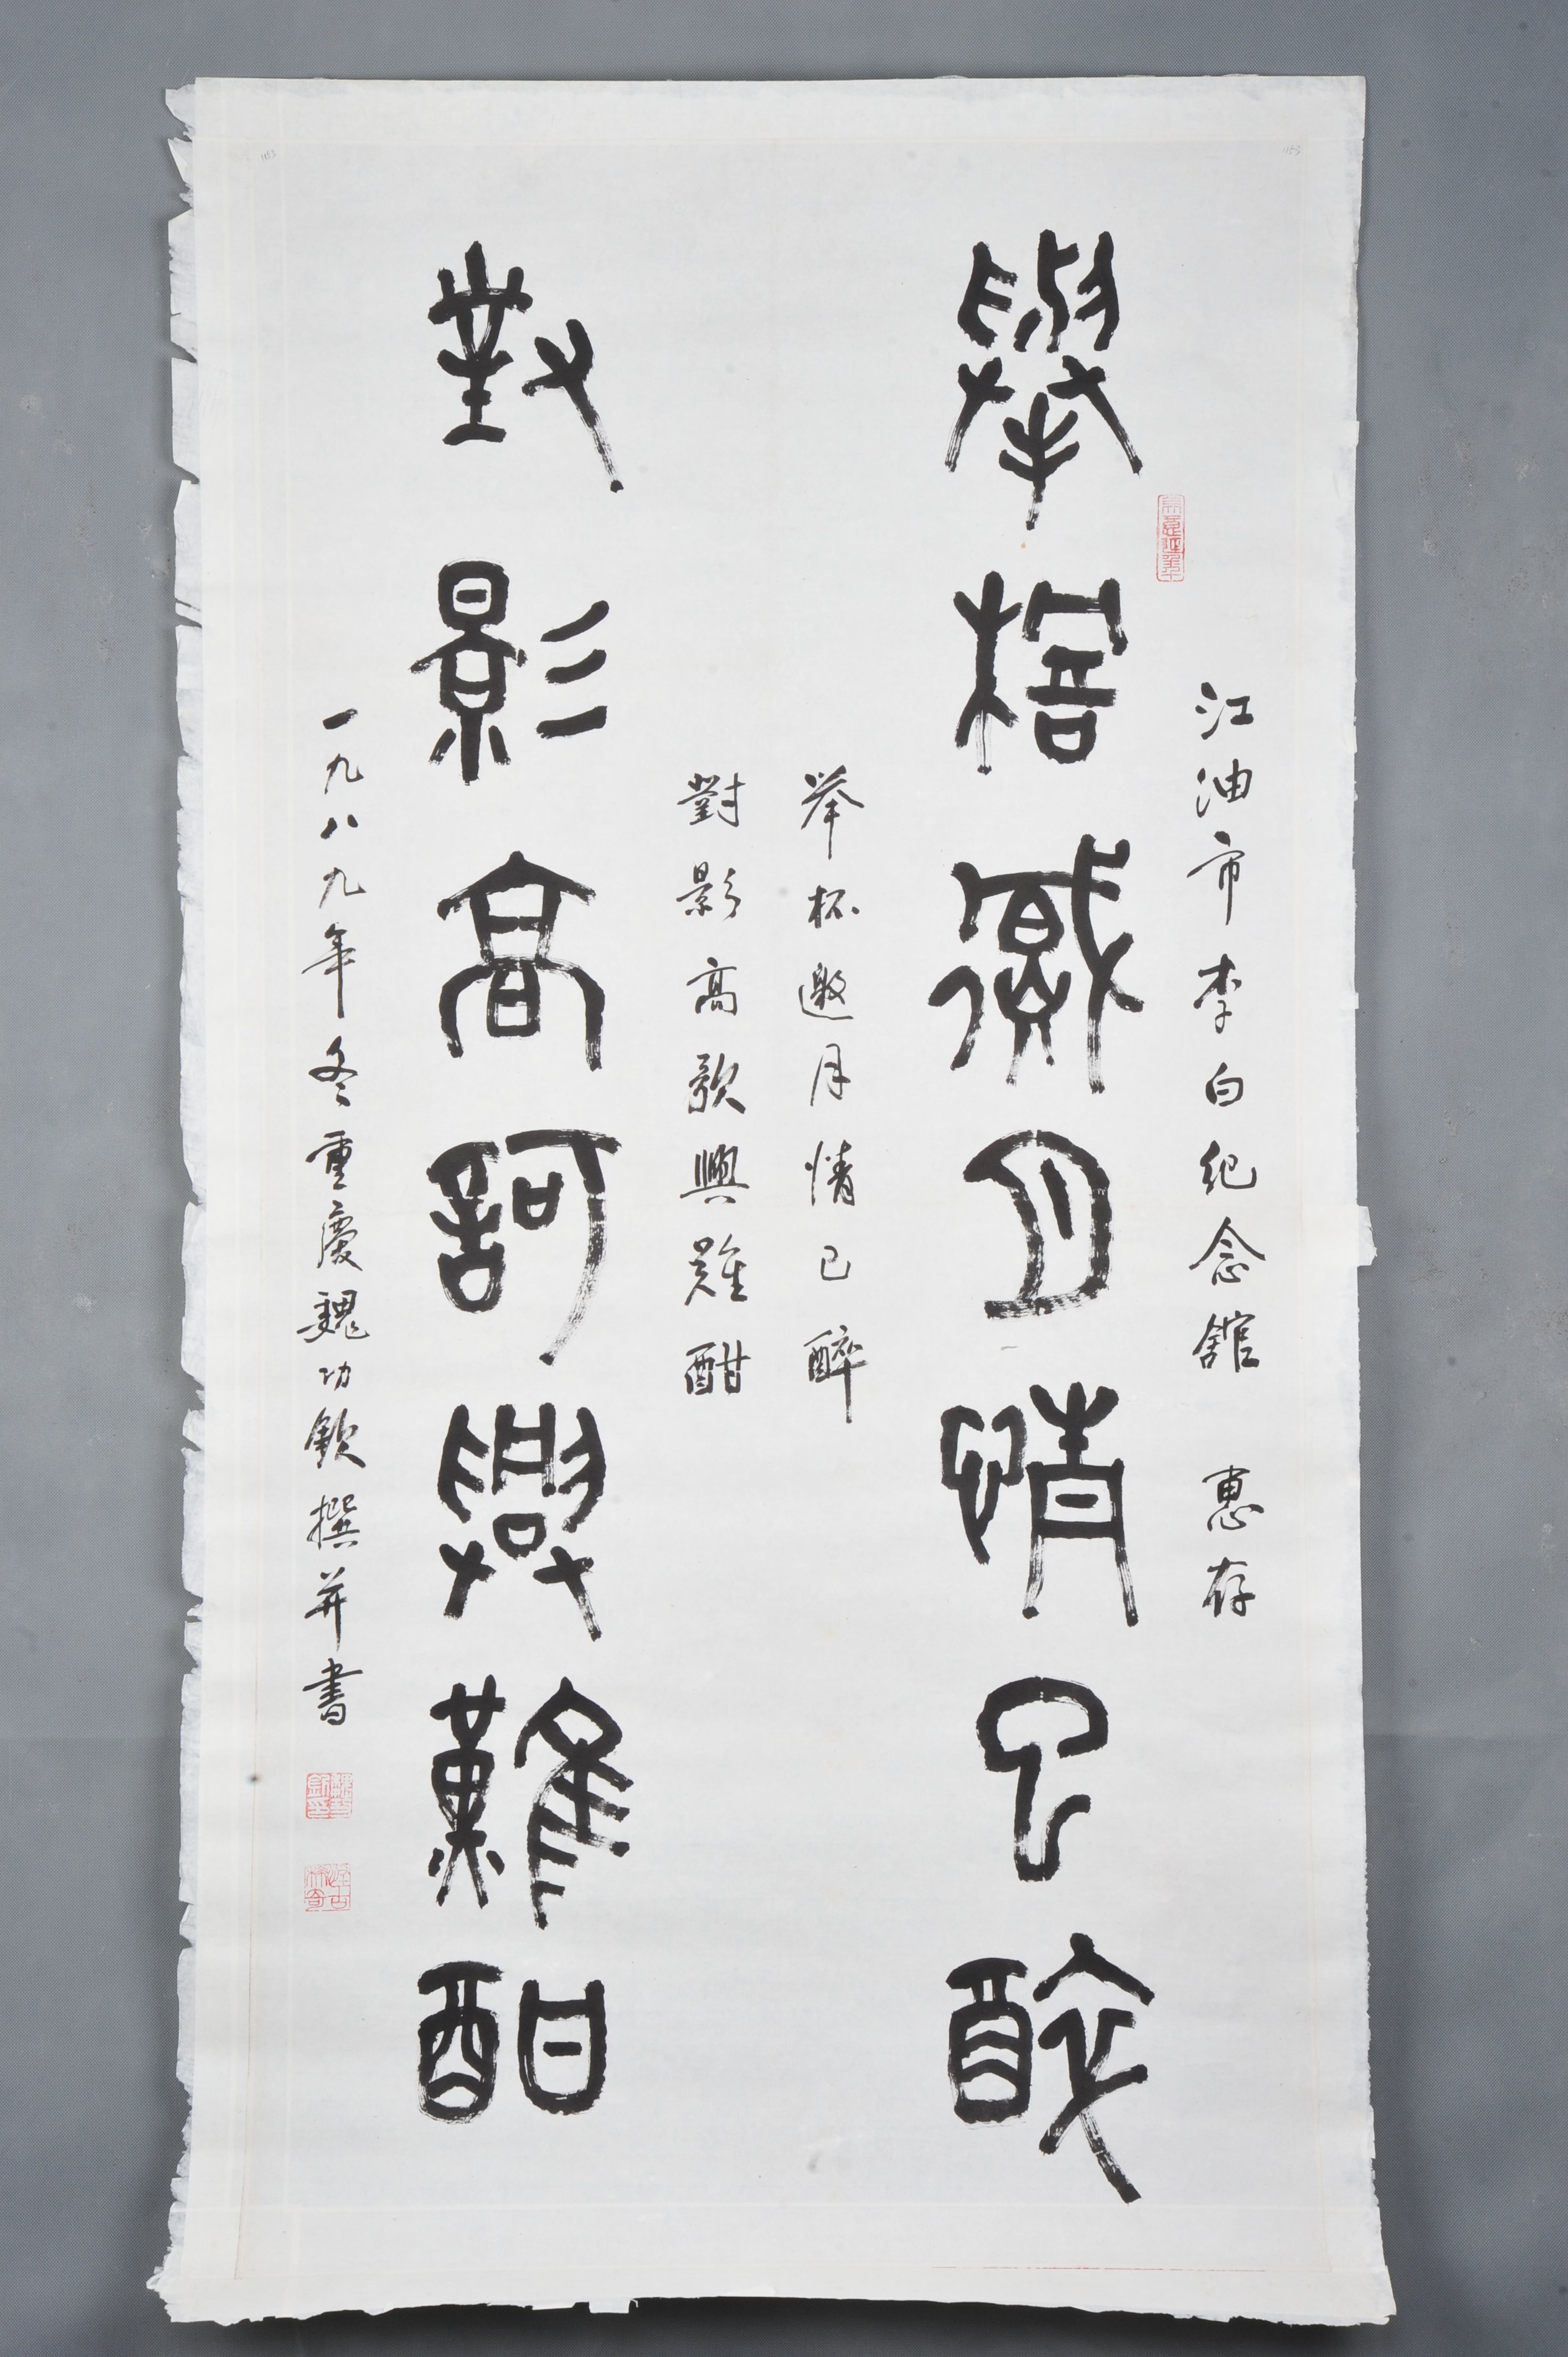 江油市李白纪念舘 惠存
舉桮邀月情已醉
举杯邀月情已醉
對影高歌興難酣
對影高訶興難酣
一九八九年冬重慶魏功欽撰并書